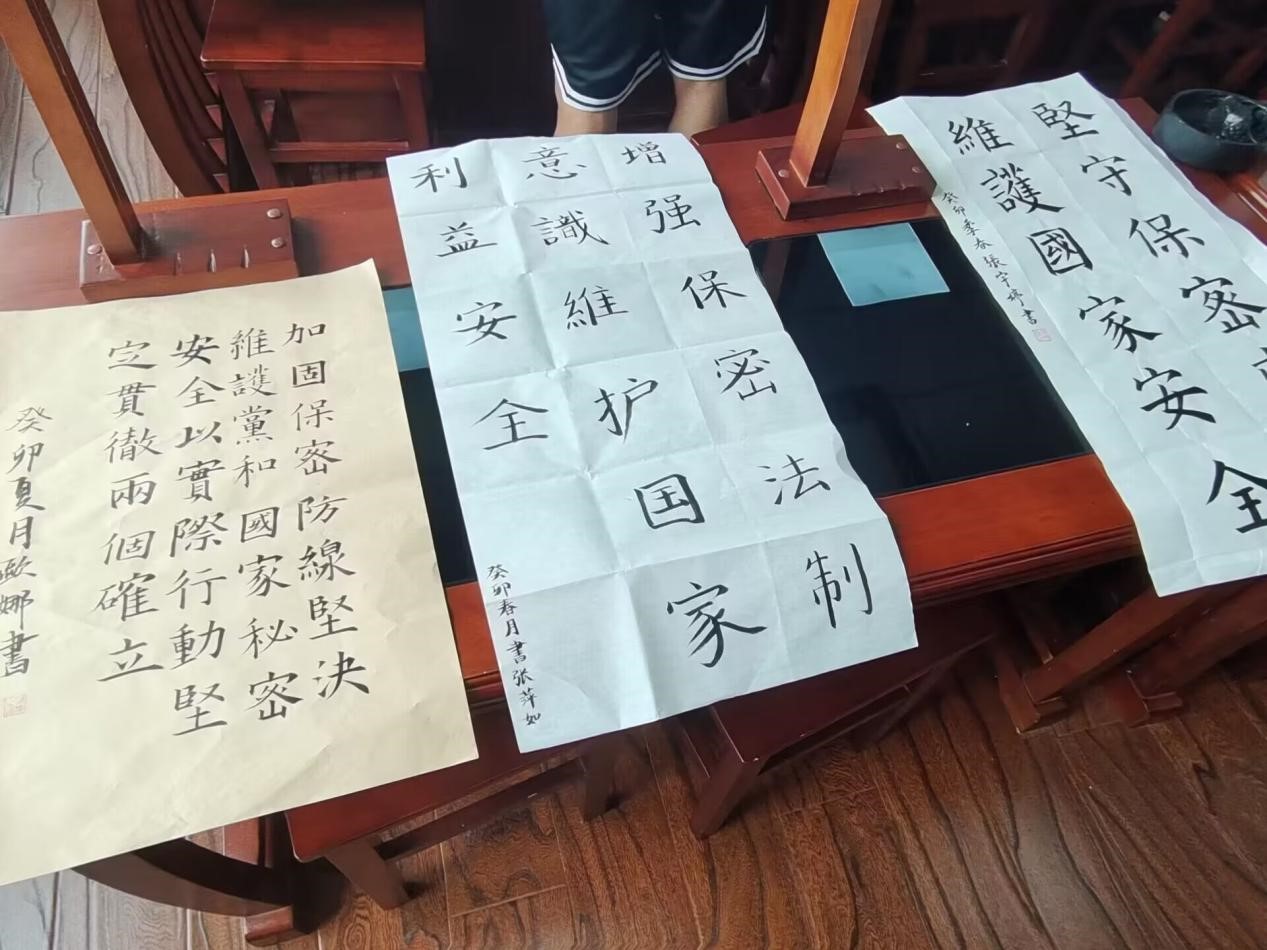 加固保密防線堅決
維護黨和國家秘密
安全以實際行動堅
定貫徹兩個確立
癸卯夏月歐娜書
增强保密法制
意識維护国家
利益安全
癸卯春月書张萍如
堅守保密
維護國家安全
癸卯季春張宇婷書